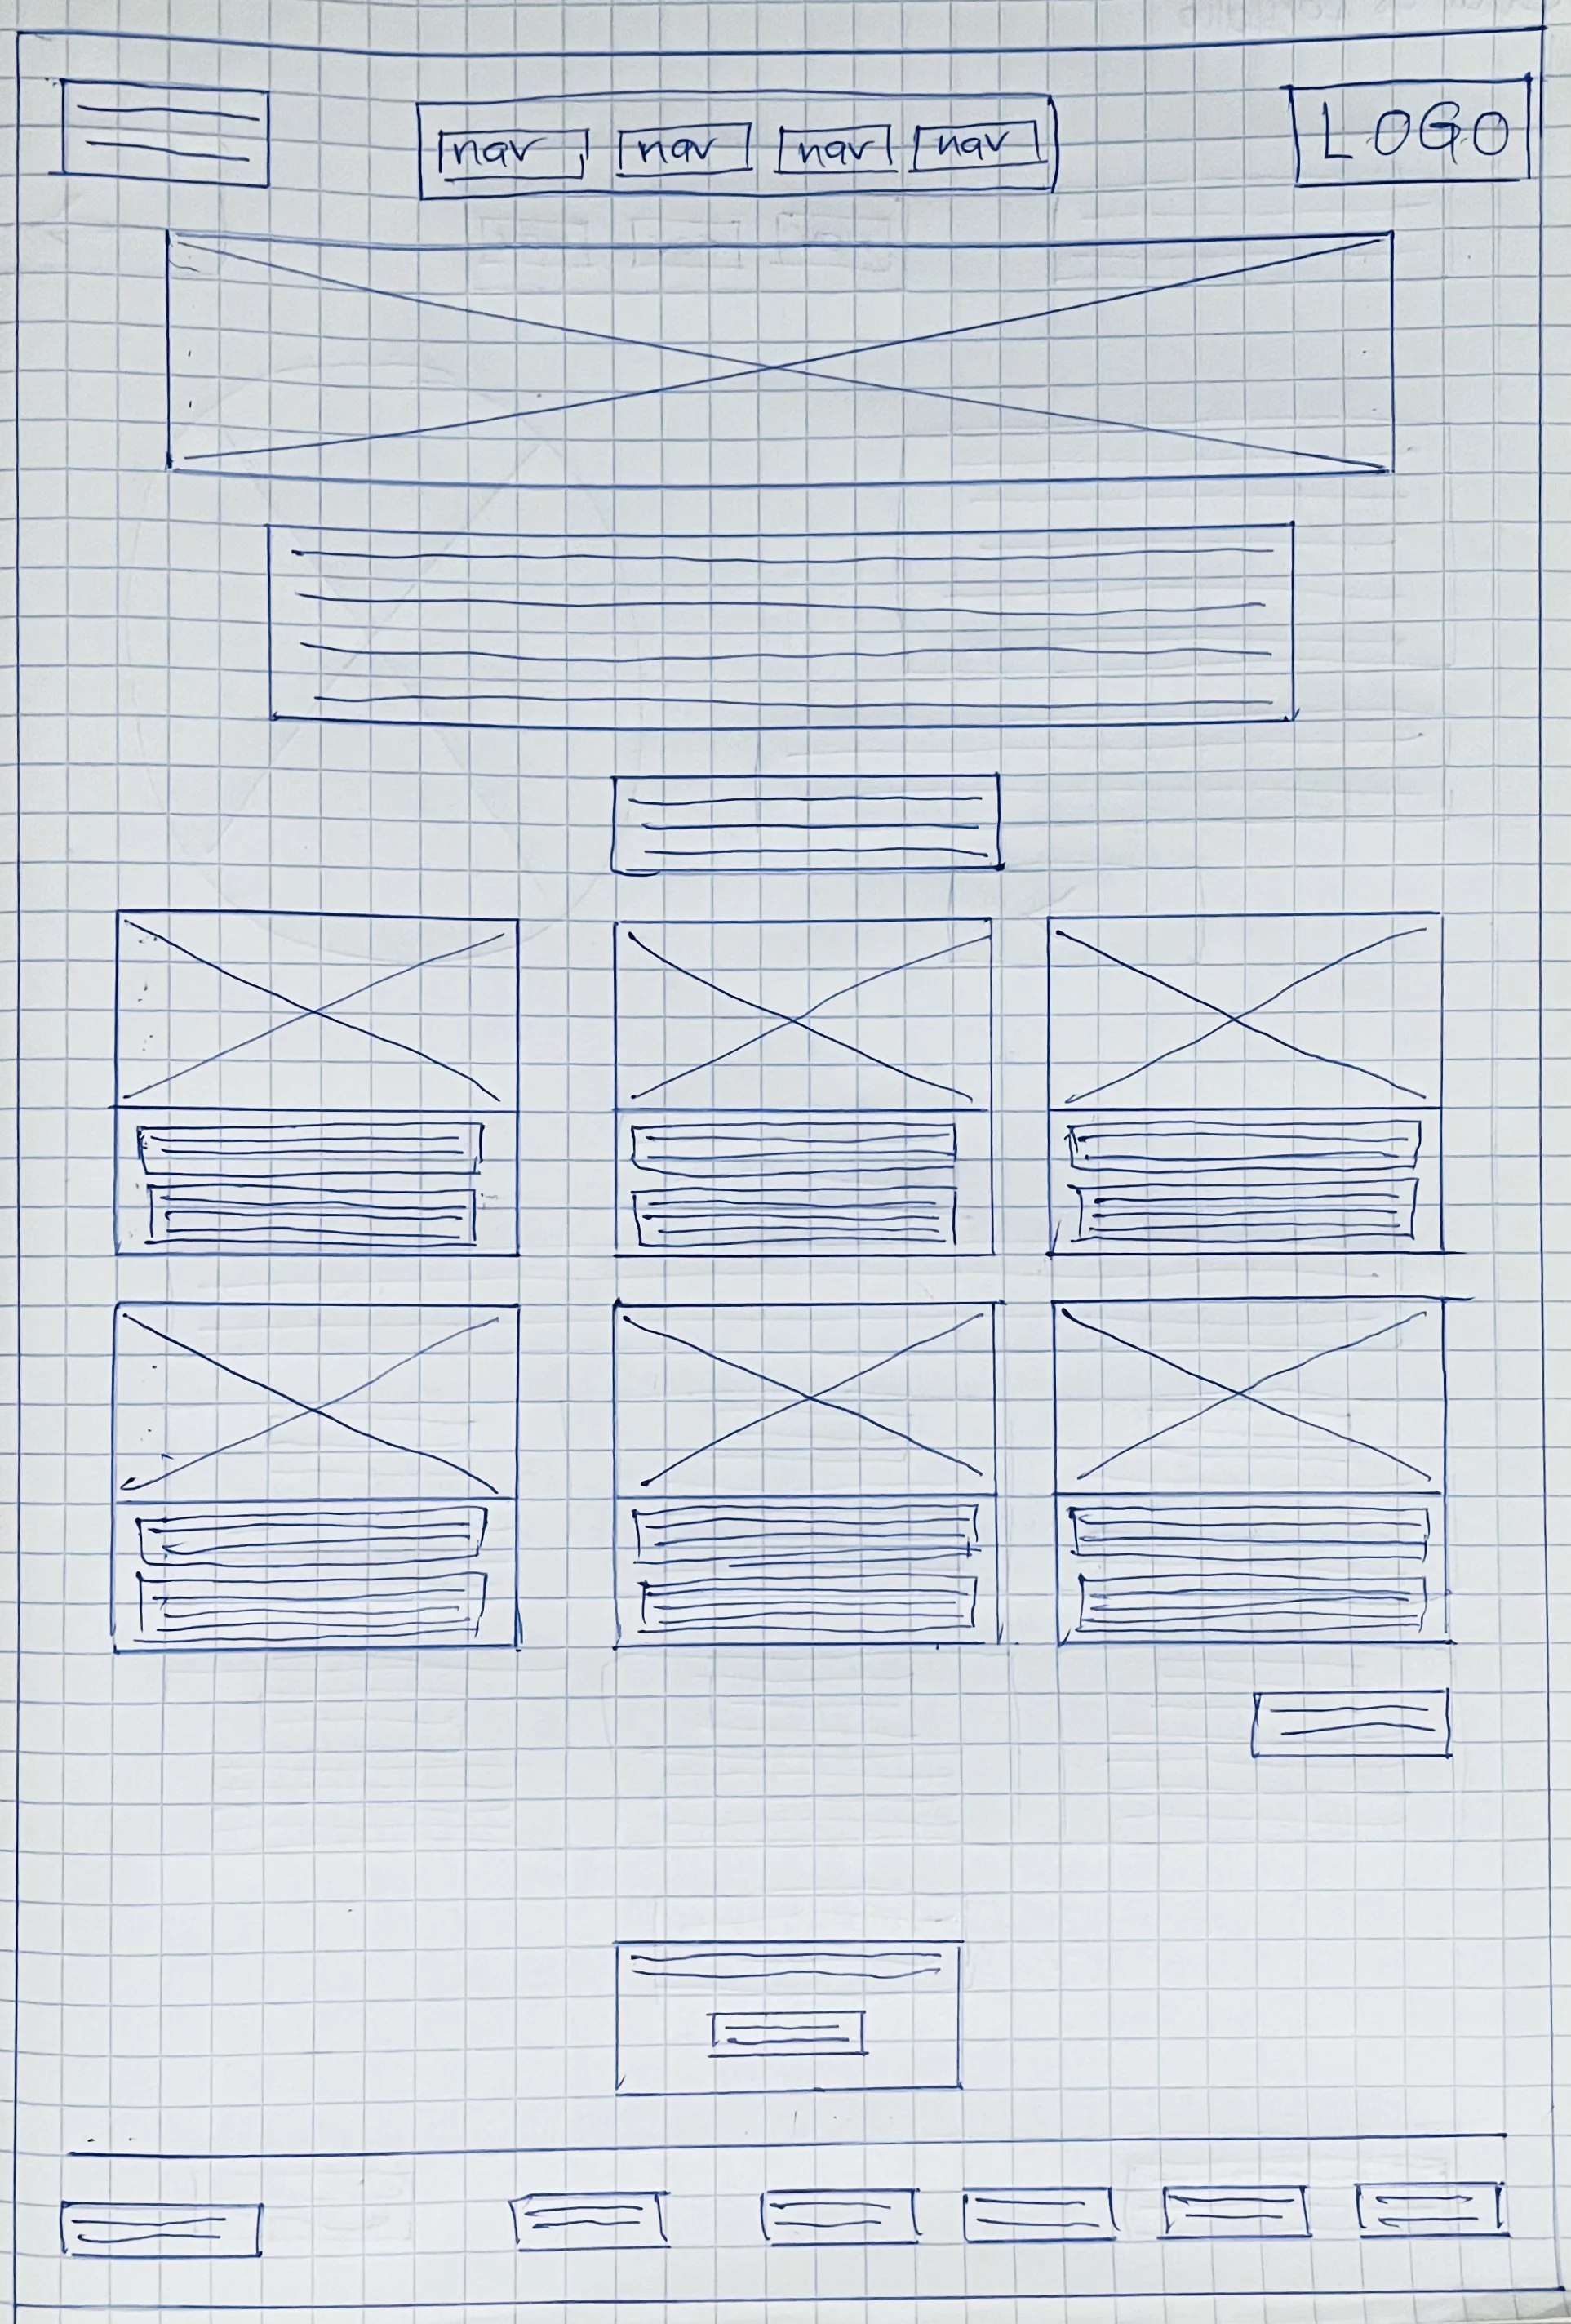 nav nav nav nav LOGO